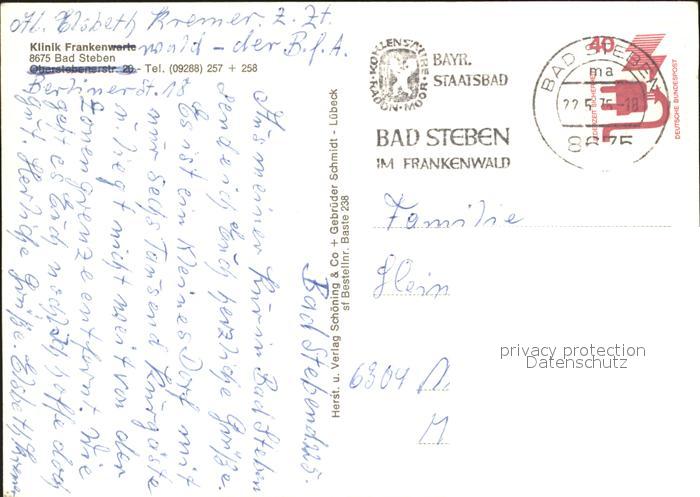 Abs. Elsbeth Kremer. z. Zt.
Klinik Frankenwarte
wald - der B.f.A.
8675 Bad Steben
Oberstebenerstr. 20 - Tel. (09288) 257 + 258
Berlinerst. 18
Bad Steben d. 22.5.
Aus meiner Kur in Bad Steben
sende ich Euch herzliche Grüße.
Es ist ein kleines Dorf mit
nur sechs Tausend Kurgäste
u. liegt nicht weit von der
Zonengrenze entfernt. Wie
geht es Euch noch, ich hoffe doch
gut. Herzliche Grüße. Elsbeth Kremer
Herst. u. Verlag Schöning & Co + Gebrüder Schmidt - Lübeck
sf Bestellnr. Baste 238
RADON · KOHLENSÄURE · MOOR
BAYR.
STAATSBAD
BAD STEBEN
IM FRANKENWALD
BAD STEBEN
ma
22.5.75-18
8675
40
JEDERZEIT SICHERHEIT
DEUTSCHE BUNDESPOST
Familie
Klein
6304
privacy protection
Datenschutz